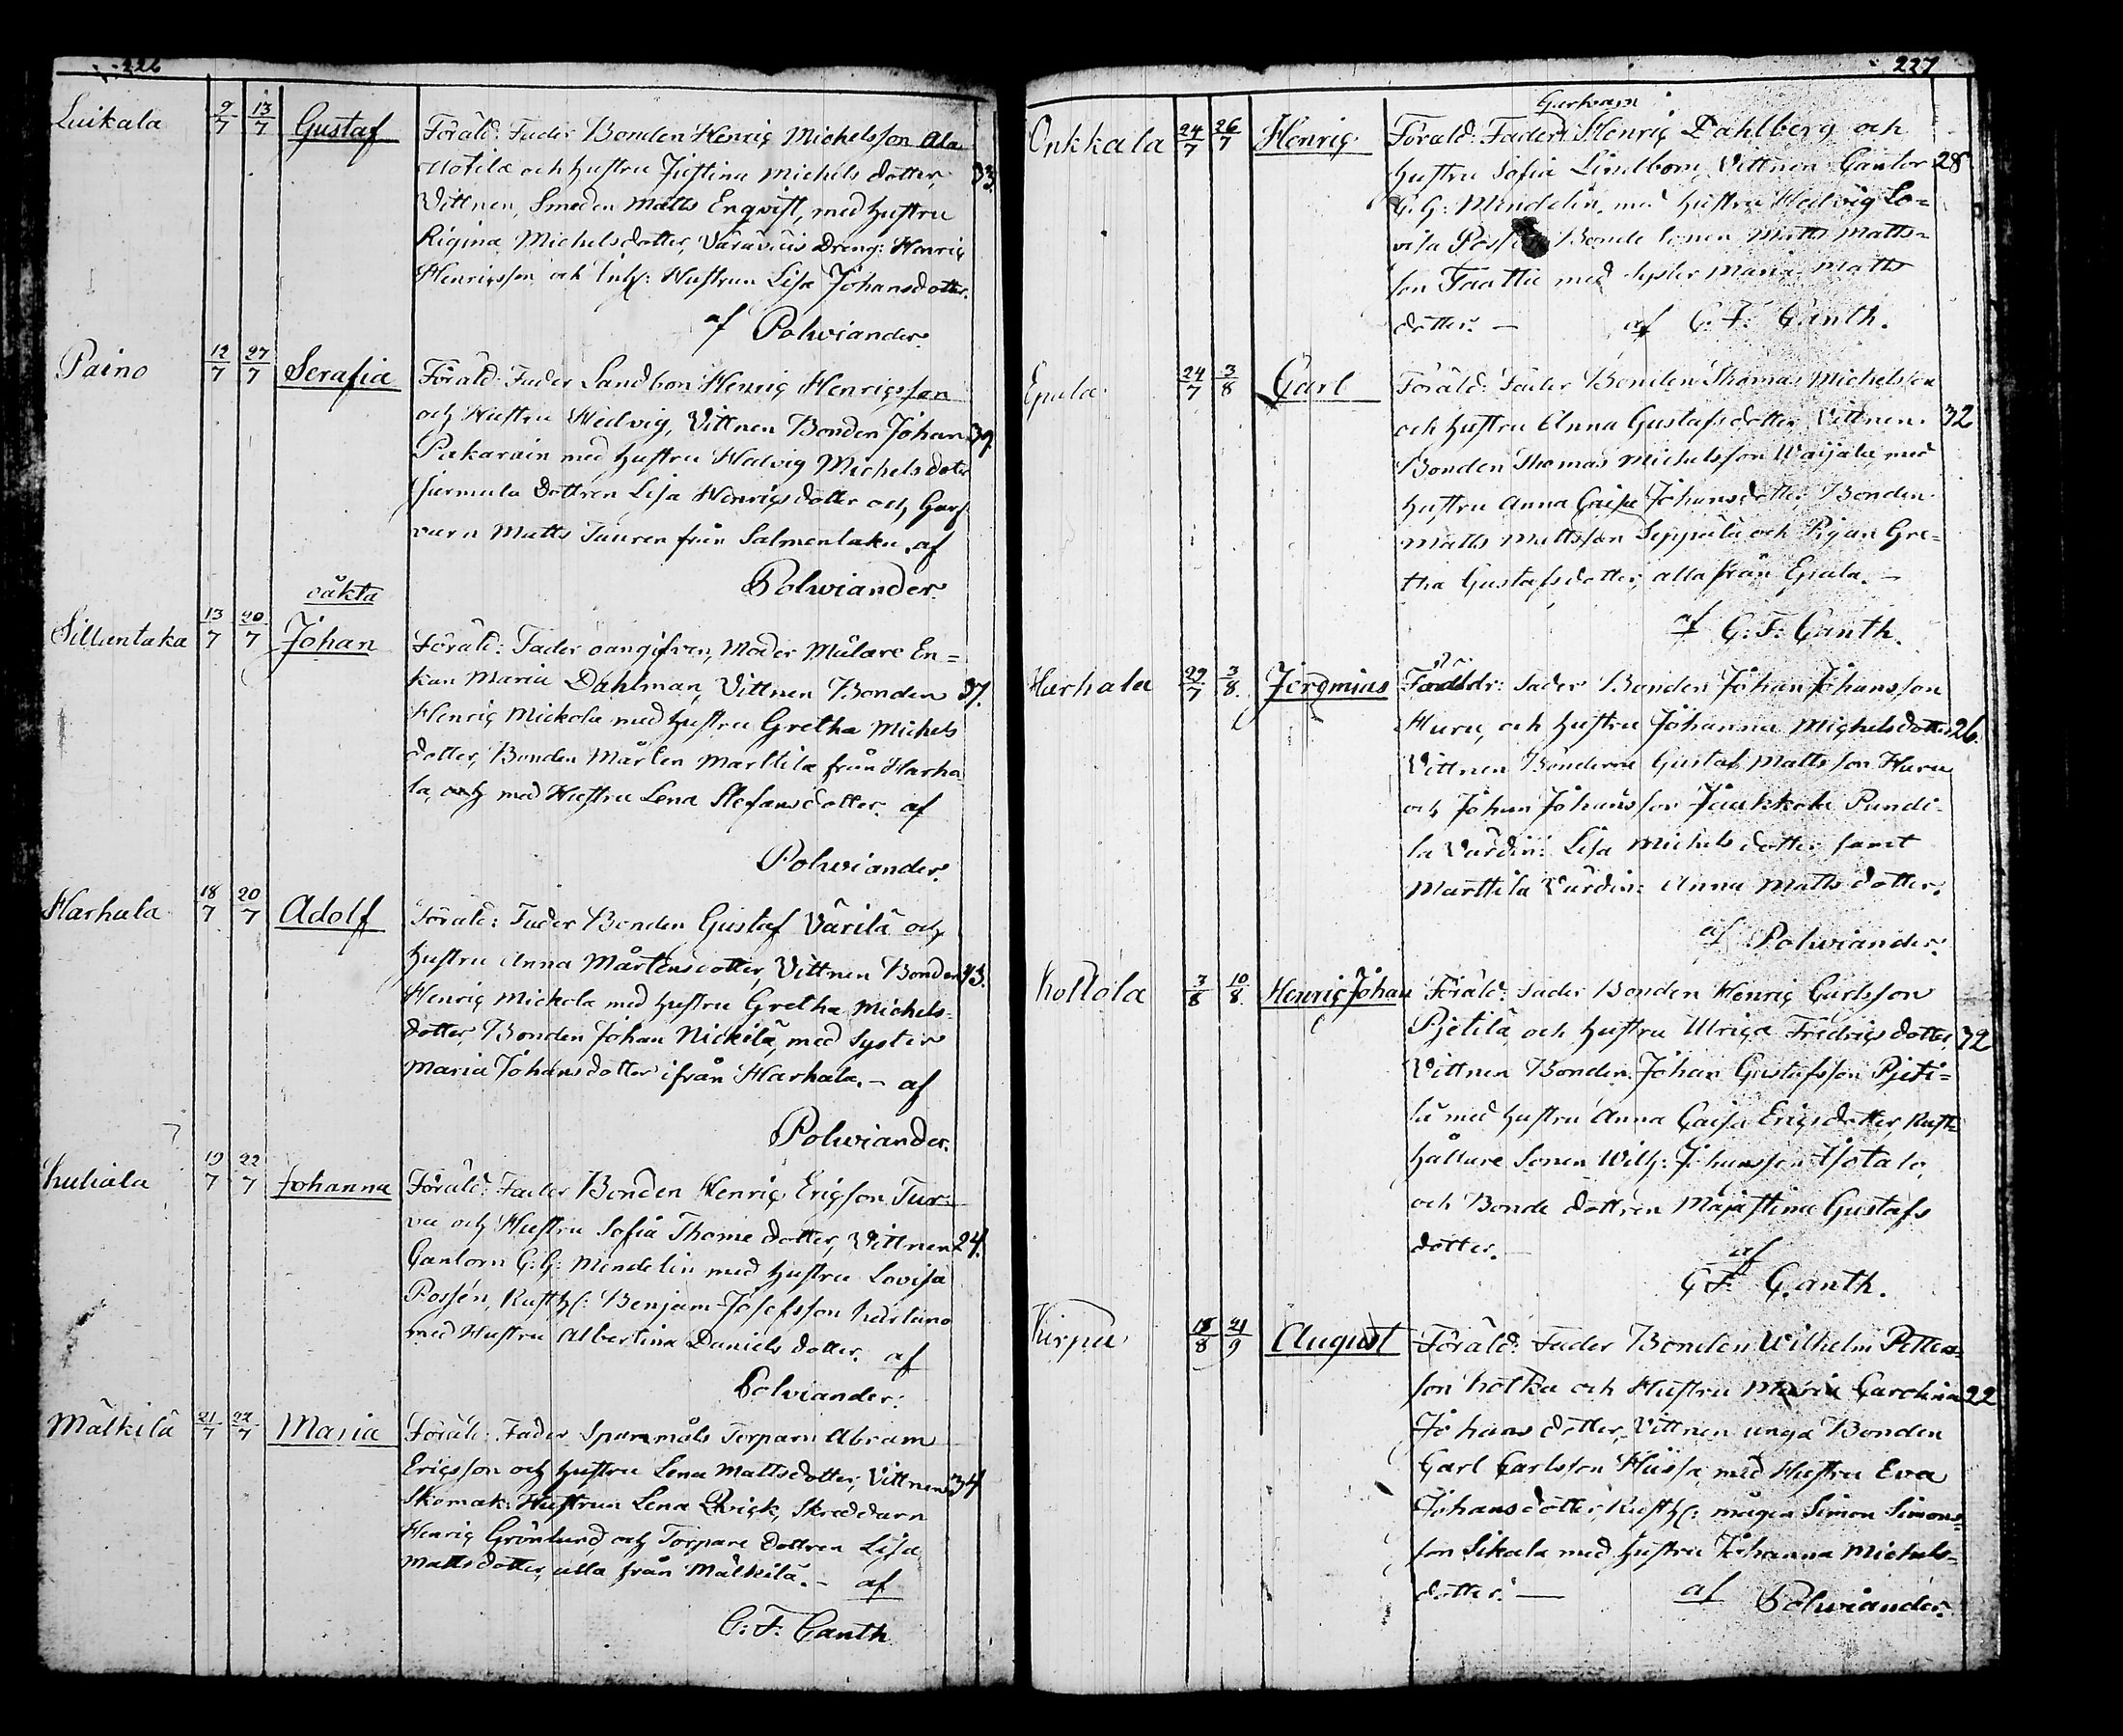 226
Luikala 9/7 13/7 Gustaf Föräld: Fader Bonden Henriç Michelsson Ala
Uotila och hustru Justina Michels dotter, 33.
Vittnen, Smeden Matts Enqvist, med hustru
Rigina Michelsdotter, Dräng: Henriç
Henriçsson och Inh: Hustrun Lisa Johansdotter.
af Polviander.
Paino 12/7 27/7 Serafia Föräld: Fader Landbon Henriç Henriçsson
och Hustru Hedvig, Vittnen Bonden Johan 39.
Pukarain med hustru Hedvig Michelsdoter
dottren Lisa Henriçsdotter och
Matts från Salmentaka. af
Polwiander.
oäkta
Sillantaka 13/7 20/7 Johan Föräld: Fader oangifven, Moder Målare En=
kan Maria Dahlman, Vittnen Bonden 37.
Henriç Mickola med hustru Gretha Michels
dotter, Bonden Mårten Marttila från Harha
la, med Hustru Lena Stefansdotter. af
Polwiander.
Harhala 18/7 20/7 Adolf Föräld: Fader Bonden Gustaf Värilä och
hustru Anna Mårtensdotter, Vittnen Bonden 43.
Henriç Mickola med hustru Gretha Michels=
dotter, Bonden Johan Nickilä, med Syster
Maria Johansdotter ifrån Harhala.- af
Polwiander.
Kuhala 19/7 22/7 Johanna Föräld: Fader Bonden Henriç Eriçson Tur=
va och Hustru Sofia Thome dotter, Vittnen 24.
Cantorn C: G: Mendelin med hustru Lovisa
Possén, Rusth: Benjam Josefsson
med Hustru Albertina Daniels dotter. af
Polviander.
Mälkilä 21/7 22/7 Maria Föräld: Fader Spanmåls Torparn Abram
Ericsson och hustru Lena Mattsdotter, Vittnen 34
Skomak: Hustrun Lena Qvick, Skreddarn
Henriç Grönlund, och Torpare dottren Lisa
Mattsdotter, alla från Mälkilä.- af
C: F: Canth
227
Garfvarn
Onkkala 24/7 26/7 Henriç Föräld: Fader Henriç Dahlberg och
hustru Sofia Lindbom, Vittnen Cantor 28
C. G: Mendelin, med hustru Hedvig Lo=
visa Bonde Sonen Matts Matts=
son med Syster Maria Matts
dotter. — af C. F. Canth.
Epaala 24/7 3/8 Carl Föräld: Fader Bonden Thomas Michelsson
och hustru Anna Gustafsdotter Vittnen. 32
Bonden Thomas Michelsson med
hustru Anna Caisa Johansdotter, Bonden
Matts Mattsson Seppälä och Pigan Gre=
tha Gustafsdotter, alla från Epaala. —
af C: F: Canth.
Harhala 29/7 3/8 Jeremias Föräldr: Fader Bonden Johan Johansson
Huru, och hustru Johanna Michelsdotter 26.
Vittnen Bönderne Gustaf Mattsson Huru
och Johan Johansson Jaakkola Pundi=
la Värdin: Lisa Michels dotter, samt
Marttila Värdin: Anna Matts dotter.
af Polwiander.
Kottola 3/8 10/8 Henriç Johan Föräld: Fader Bonden Henriç Carlsson
Pjetilä och hustru Ulrica Fredriçs dotter 32
Vittnen Bonden Johan Gustafsson Pjeti=
lä med hustru Anna Caisa Ericsdotter, Rust=
hållare Sonen Wilh: Johansson Isotalo
och Bonde dottren Majastina Gustafs
dotter. — af
C F. Canth.
Kirpu 18/8 21/9 August Föräld: Fader Bonden Wilhelm Petters=
son och Hustru Maria Carolina 22
Johans dotter, Vittnen unga Bonden
Carl Carlsson med Hustru Eva
Johansdotter, Rusth: mågen Simon Simons=
son Sikala med hustru Johanna Michels=
dotter. — af Polwiander.